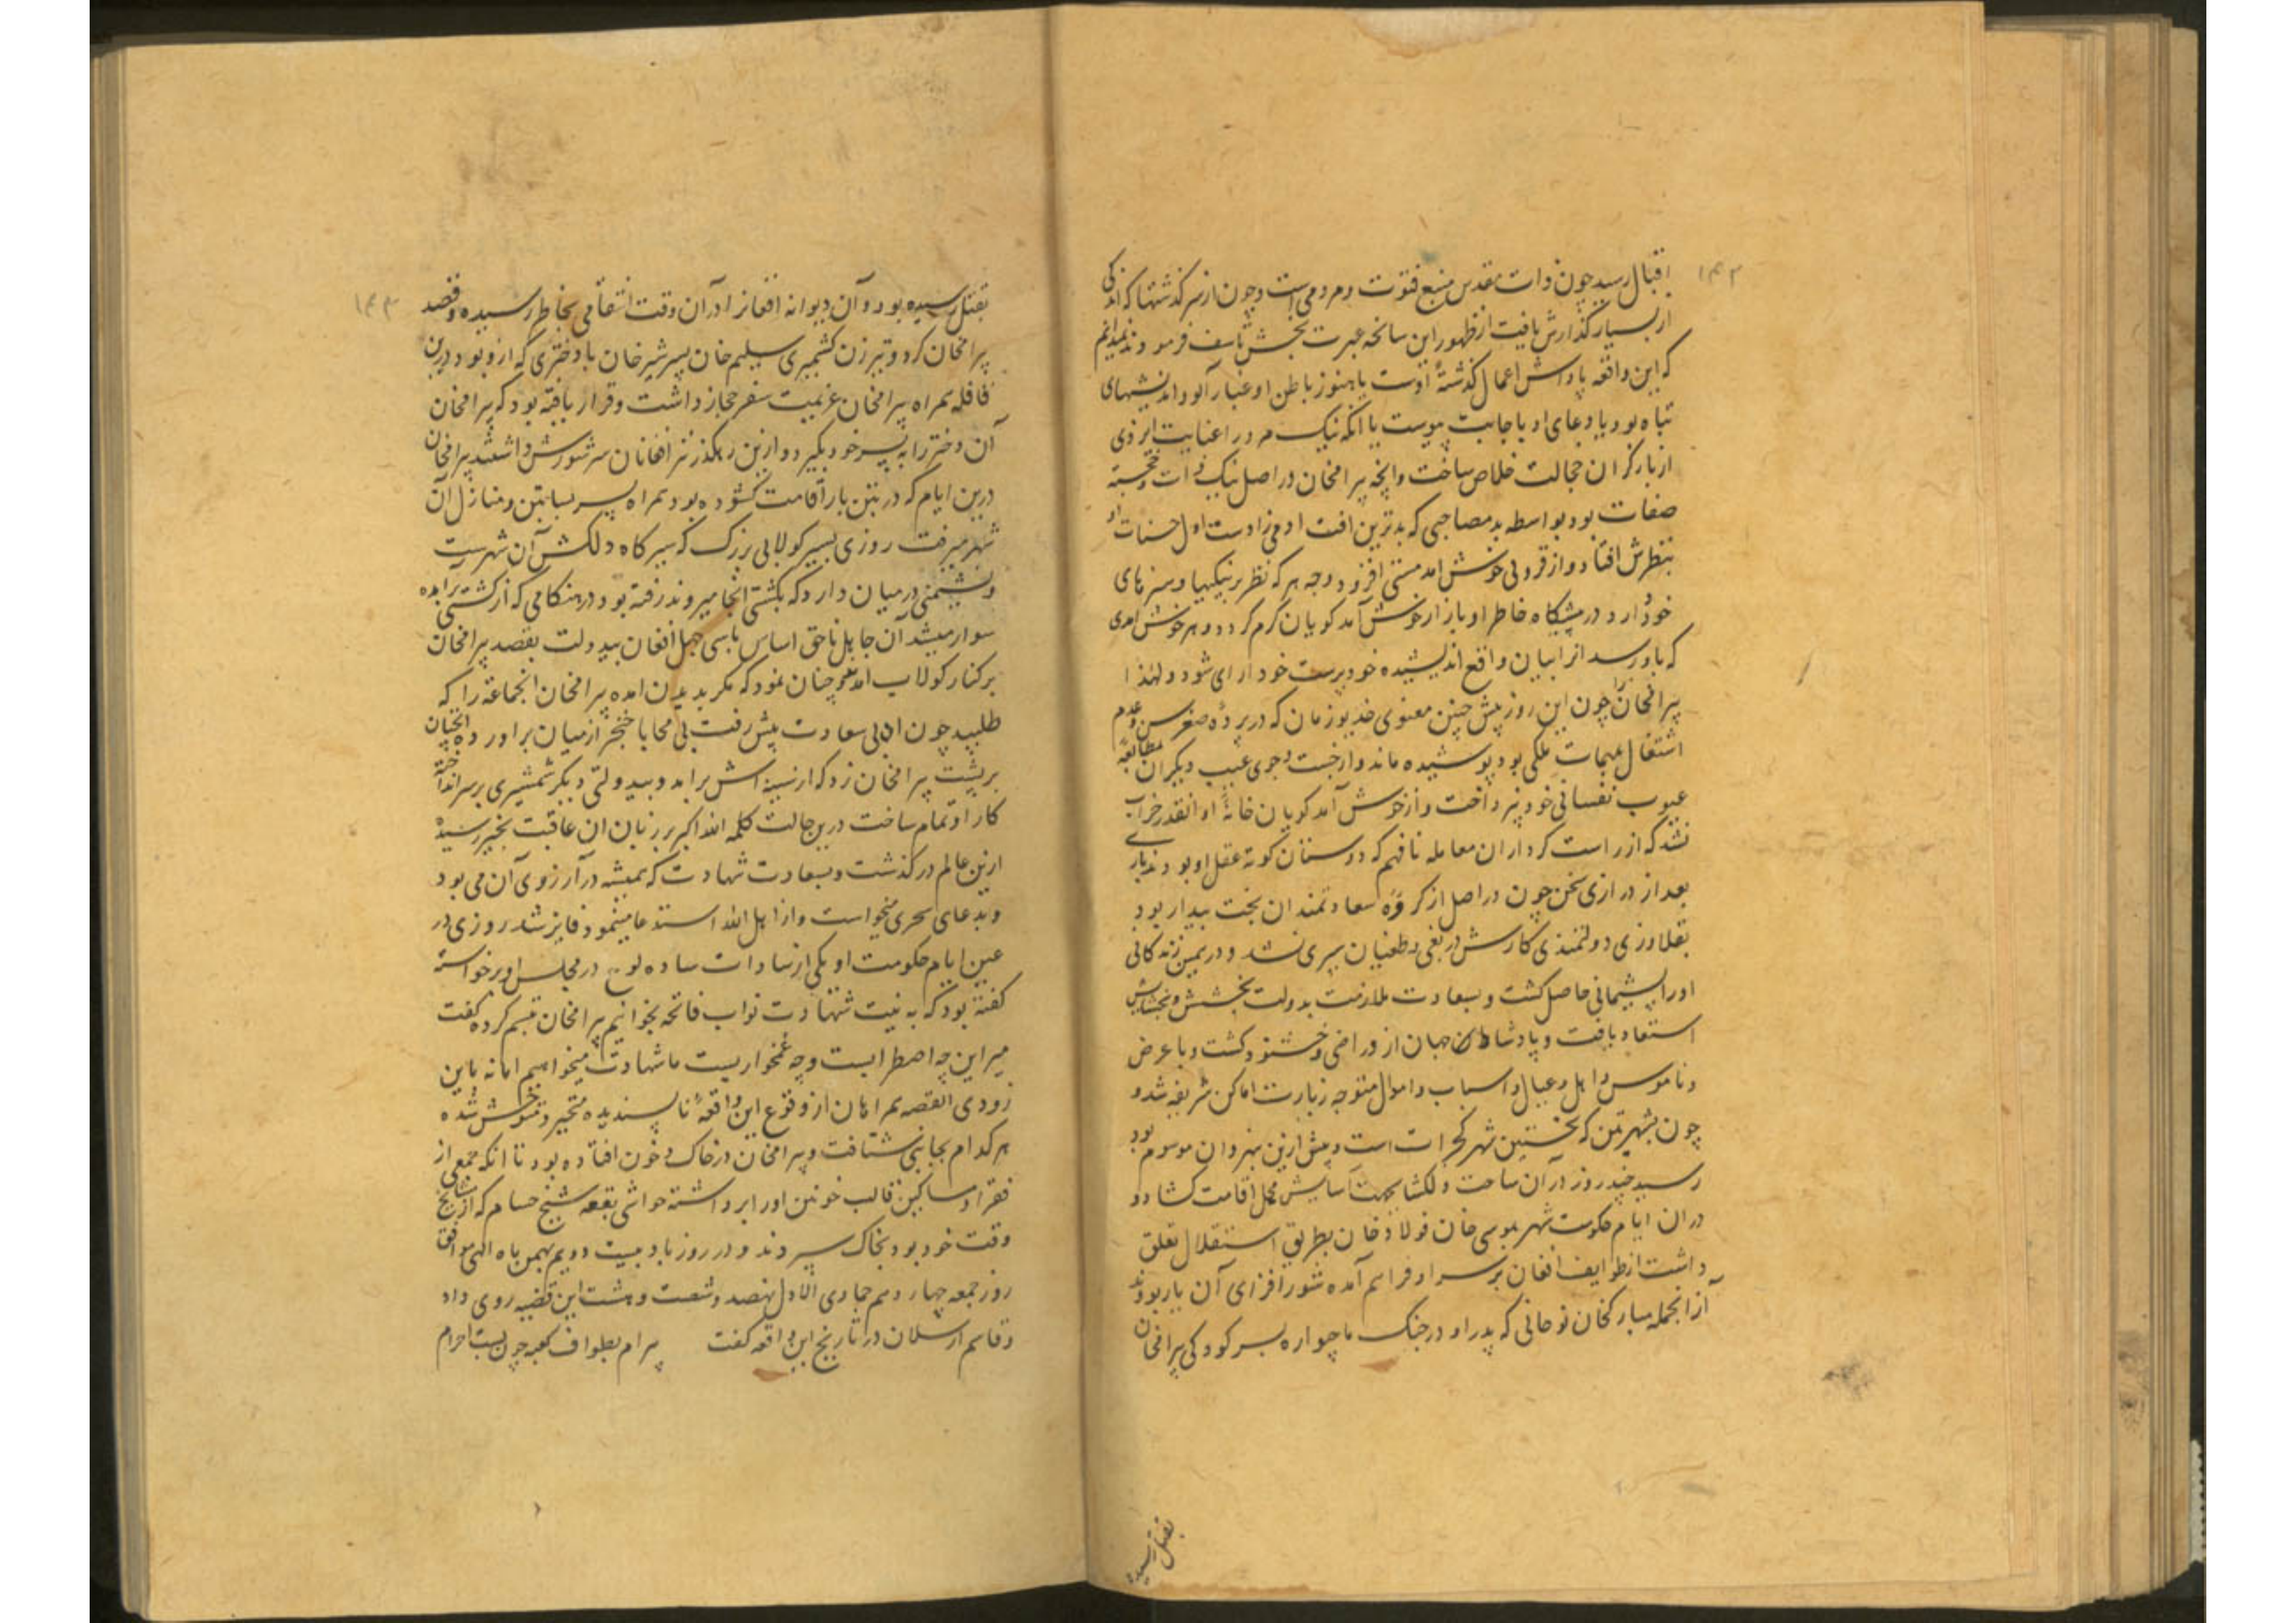 ۱۴۲
اقبال رسید چون ذات مقدس منبع فتوت و مردمی است و چون از سرگذشتها که اندکی
از بسیار گذارش یافت از ظهور این سانحه عبرت بخش تاسف فرمودند نمیدانم
که این واقعه پاداش اعمال گذشتهٔ اوست یا هنوز باطن او غبار آلود اندیشهای
تباه بود یا دعای او باجابت پیوست یا آنکه نیک مرد را عنایت ایزدی
از بار گران خجالت خلاص ساخت و انچه بیرامخان در اصل نیک ذات و خجسته
صفات بود بواسطه بد مصاحبی که بدترین افت ادمی زادست اول حسنات او
بنظرش افتاد و از فزونی خوش امد مستی افزود و جه هر که نظر بر نیکیها و سزهای
خود دارد در پیشگاه خاطر او بازار خوش آمد گویان گرم گردد و هر خوش امدی
که باو رسد انرا بیان واقع اندیشیده خود پرست خود ارای شود و لهذا
بیرامخان را چون این روز پیش چنین معنوی خدیو زمان که در پردهٔ صغر سن و عدم
اشتغال بمهمات ملکی بود پوشیده ماند و از جست و جوی عیب دیگران بمطالعهٔ
عیوب نفسانی خود نپرداخت و از خوش آمد گویان خانهٔ او انقدر خراب
نشد که از راست کرداران معامله نافهم که دوستان کوته عقل او بودند باری
بعد از درازی سخن چون در اصل از کروه سعادتمندان بخت بیدار بود
بقلاوزی دولتمندی کارش در بغی و طغیان سپری نشد و در همین زندگانی
او را پشیمانی حاصل گشت و بسعادت ملازمت بدولت بخشش و بخشایش
استعاد یافت و پادشاه جهان ازو راضی و خشنود گشت و با عرض
و ناموس و اهل و عیال و اسباب و اموال متوجه زیارت اماکن شریفه شد و
چون بشهر پتن که نخستین شهر گجرات است و پیش ازین بنهروان موسوم بود
رسید چند روز در آن ساحت دلگشا بجهت آسایش محل اقامت گشاد و
دران ایام حکومت شهر بموسی خان فولاد خان بطریق استقلال تعلق
داشت از طوایف افغان بر سر او فراهم آمده شورافزای آن یار بودند
از انجمله مبارکخان نوحانی که پدر او در جنگ ماچواره بسر کردگی بیرامخان
بقتل رسیده
۱۴۳
بقتل رسیده بود و آن دیوانه افغانرا در آن وقت انتقامی بخاطر رسیده و قصد
بیرامخان کرد و نیز زن کشمیری سلیم خان پسر شیرخان با دختری که ازو بود درین
قافله همراه بیرامخان عزیمت سفر حجاز داشت و قرار یافته بود که بیرامخان
آن دختر را به پسر خود بگیرد و ازین رهگذر نیز افغانان سر شورش داشتند بیرامخان
درین ایام که در پتن بار اقامت گشوده بود همراه بسیر بساتین و منازل آن
شهر میرفت روزی بسیر کولابی بزرگ که سیرگاه دلکش آن شهرست
و نشیمنی در میان دارد که بکشتی آنجا میروند رفته بود در هنگامی که از کشتی برامده
سوار میشد آن جاهل ناحق اساس با سی چهل افغان بیدولت بقصد بیرامخان
بر کنار کولاب امده چنان نمود که مگر بدیدن امده بیرامخان انجماعه را که
طلبید چون ان بی سعادت پیش رفت بی محابا خنجر از میان براورده انچنان
بر پشت بیرامخان زد که از سینه اش برامد و بیدولتی دیگر شمشیری بر سر انداخته
کار او تمام ساخت درین حالت کلمه الله اکبر بر زبان ان عاقبت بخیر رسیده
ازین عالم درگذشت و بسعادت شهادت که همیشه در آرزوی آن می بود
و بدعای سحری میخواست و از اهل الله استدعا مینمود فایز شد روزی در
عین ایام حکومت او یکی از سادات ساده لوح در مجلس او برخواسته
گفته بود که به نیت شهادت نواب فاتحه بخوانیم بیرامخان تبسم کرده گفت
میر این چه اضطرابست و چه غمخواریست ما شهادت میخواهیم اما نه باین
زودی القصه همراهان از وقوع این واقعهٔ ناپسندیده متحیر و متوحش شده
هر کدام بجانبی شتافت و بیرامخان در خاک و خون افتاده بود تا انکه جمعی از
فقرا و مساکین قالب خونین او را برداشته حواشی بقعه شیخ حسام که از مشایخ
وقت خود بود بخاک سپردند و در روز باد بیست دویم بهمن ماه الهی موافق
روز جمعه چهاردهم جمادی الاول نهصد و شصت و هشت این قضیه روی داد
و قاسم ارسلان در تاریخ این واقعه گفت بیرام بطواف کعبه چون بست احرام